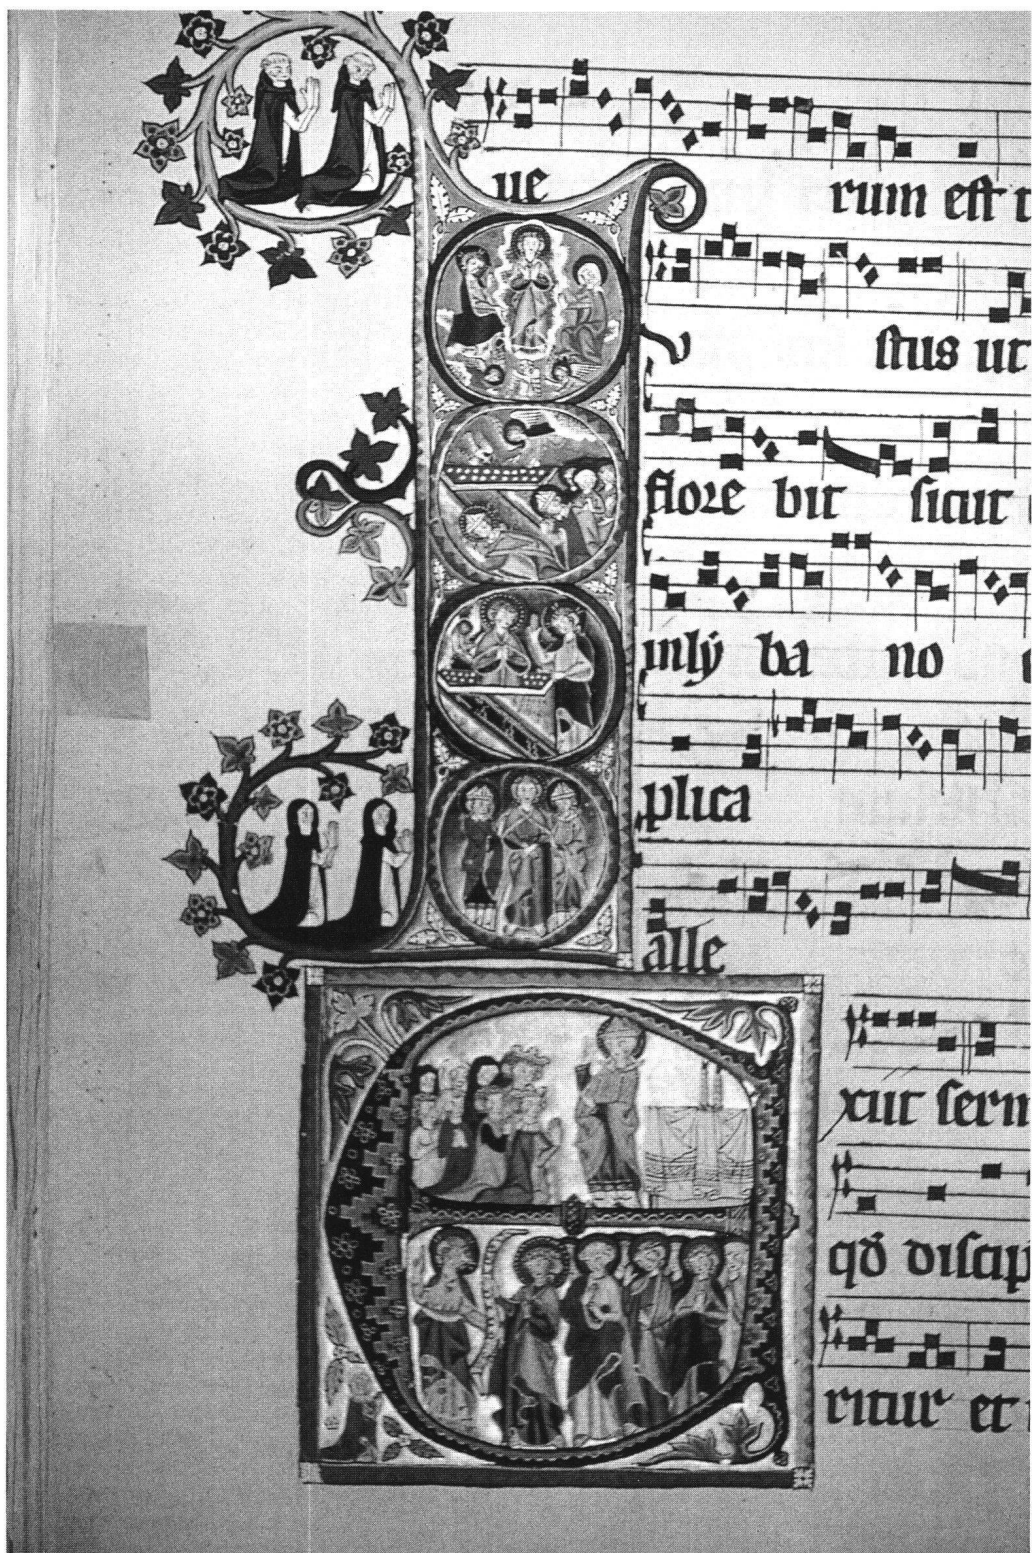 ue rum est
stus ut
flore bit sicut
inly ba no
plica
alle
xiit serm
qd discip
ritur et